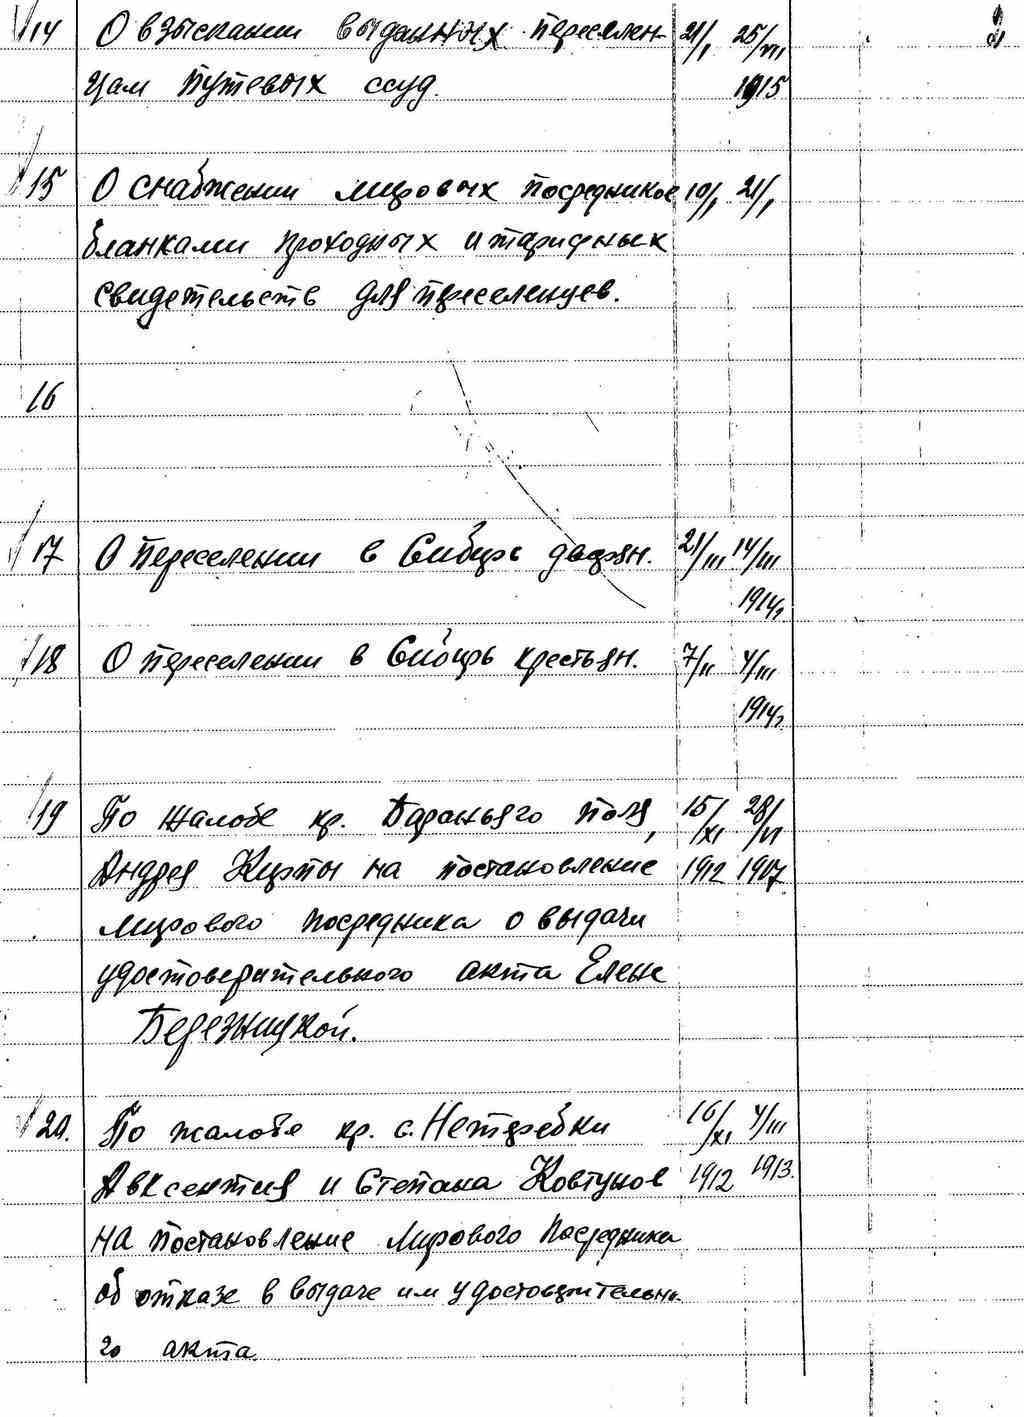 14 О взыскании выданных переселен- 21/I 25/VII
цам путевых ссуд. 1915
15 О снабжении мировых посредников 10/I 21/I
бланками проходных и тарифных
свидетельств для переселенцев.
16
17 О переселении в Сибирь дворян. 21/III 14/III
1914г
18 О переселении в Сибирь крестьян. 7/II 4/III
1914г.
19 По жалобе кр. Бараньяго поля, 15/XI 28/VI
Андрея Кирпы на постановление 1912 1907
мирового посредника о выдачи
удостоверительного акта Елене
Бережницкой.
20. По жалобе кр. с. Нетеребки 16/XI 4/III
Авксентия и Степана Ковтунов 1912 1913.
на постановление Мирового Посредника
об отказе в выдаче им удостоверительн-
го акта.